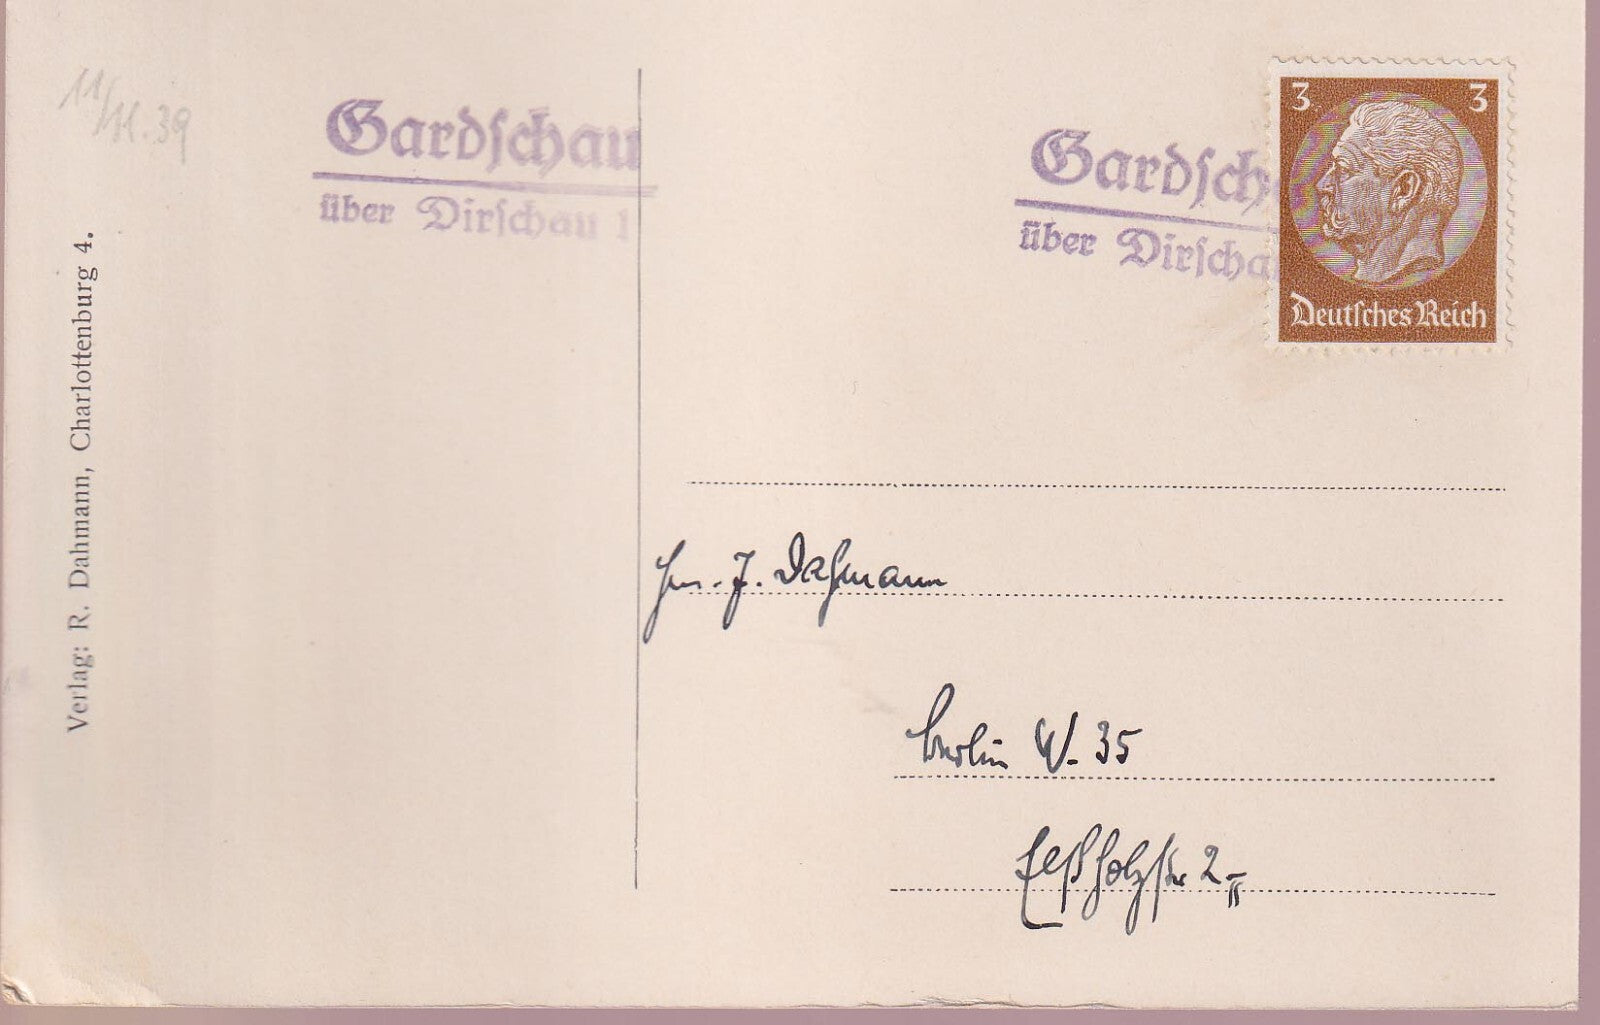 11/11.39
Gardschau
über Dirschau 1
Gardsch
über Dirscha
3 3
Deutsches Reich
Verlag: R. Dahmann, Charlottenburg 4.
J. Dahmann
Berlin W. 35
Elßholzstr 2 II